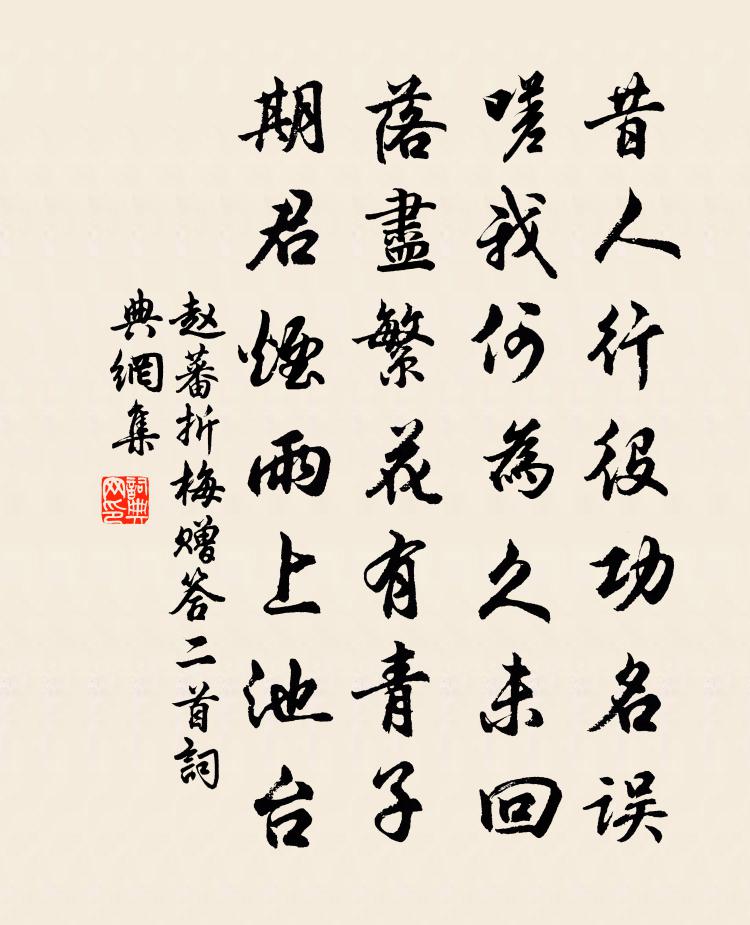 昔人行役功名误
嗟我何為久未回
落盡繁花有青子
期君煙雨上池台
赵蕃折梅赠答二首詞
典網集
詞典
网印